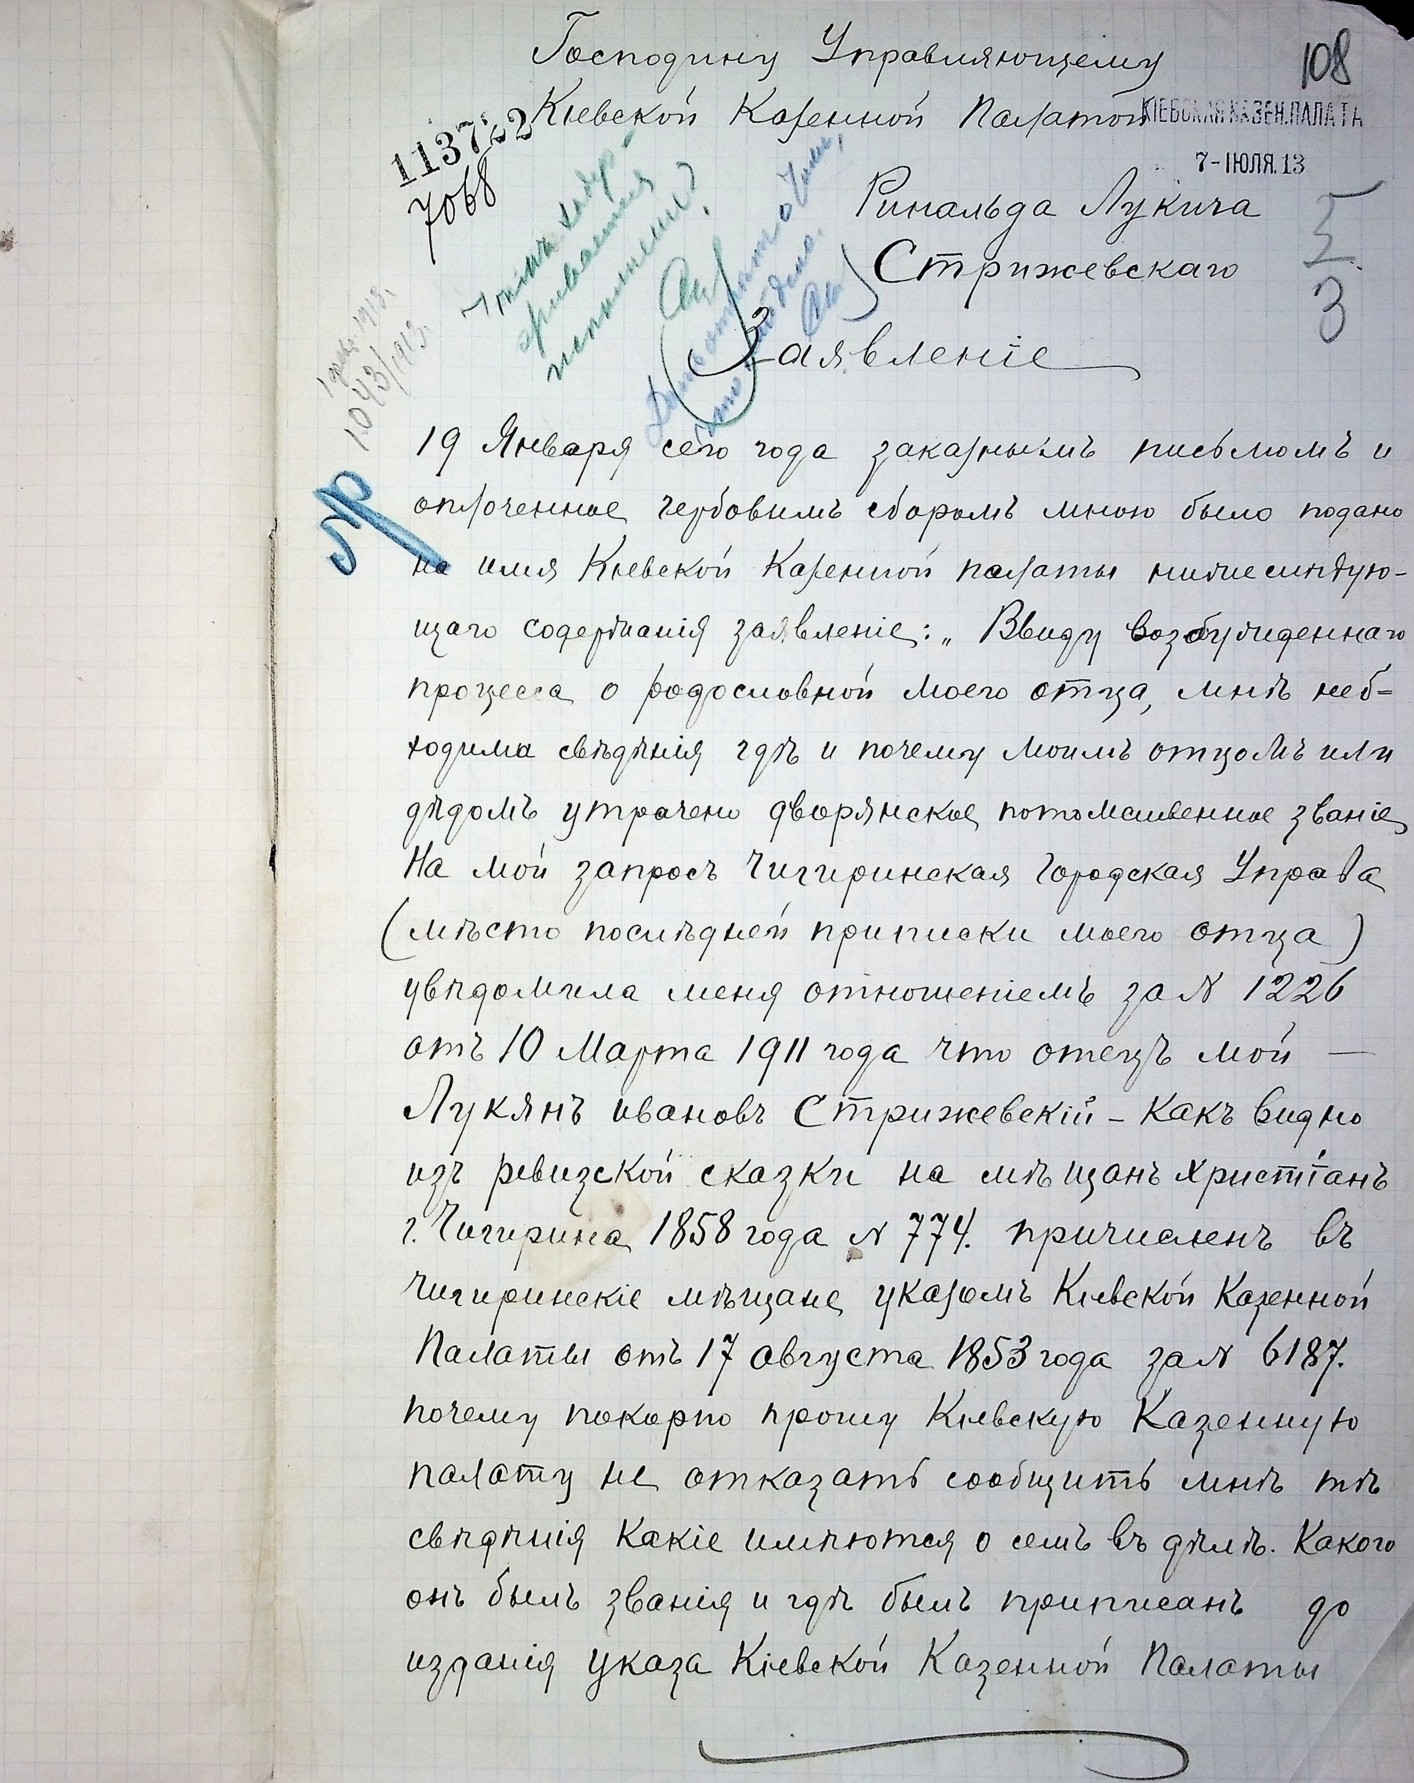 108
Господину Управляющему
Кіевской Казенной Палатой
КІЕВСКАЯ КАЗЕН.ПАЛАТА
7-ІЮЛЯ.13
113722
7068
Ринальда Лукича
Стрижевскаго
5
3
Заявленіе
1043/1913
19 Января сего года заказнымъ письмомъ и
оплоченное гербовимъ сборомъ мною было подано
на имя Кіевской Казенной палаты нижеслѣдую-
щаго содержанія заявленіе: „Ввиду возбужденнаго
процесса о родословной моего отца, мнѣ необ=
ходима свѣдѣнія гдѣ и почему моимъ отцомъ или
дѣдомъ утрачено дворянское потомственное званіе
На мой запросъ Чигиринская Городская Управа
(мѣсто послѣдней приписки моего отца)
увѣдомила меня отношеніемъ за N 1226
отъ 10 Марта 1911 года что отецъ мой —
Лукянъ ивановъ Стрижевскій – какъ видно
изъ ревизской сказки на мѣщанъ христіанъ
г. Чигирина 1858 года N 774. причисленъ въ
чигиринскіе мѣщане указомъ Кіевской Казенной
Палаты отъ 17 августа 1853 года за N 6187.
почему покорно прошу Кіевскую Казенную
палату не отказать сообщить мнѣ тѣ
свѣдѣнія какіе имѣются о семъ въ дѣлѣ. Какого
онъ былъ званія и гдѣ былъ приписанъ до
изданія указа Кіевской Казенной Палаты